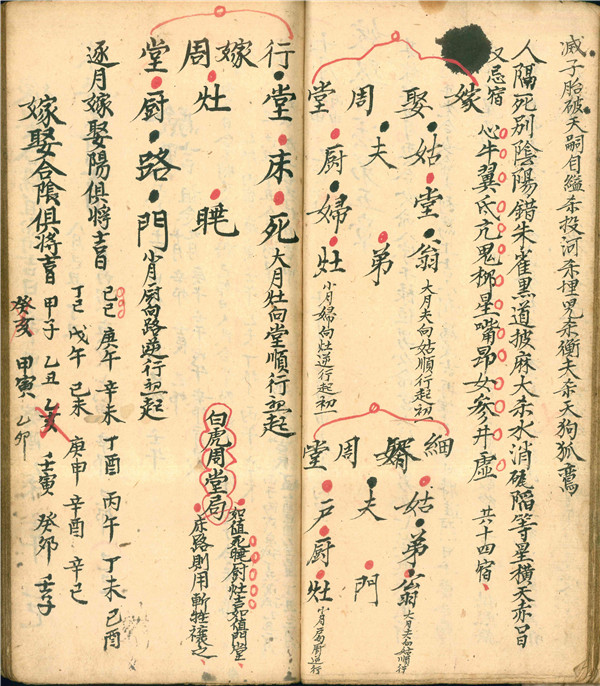 滅子胎破天嗣自縊杀投河杀埋児杀衡夫杀天狗狐鸞
人隔死别陰陽錯朱雀黑道披麻大杀水消
等星横天赤口
又忌宿 心牛翼氐亢鬼柳星嘴昴女参井虚 共十四宿
嫁娶周堂
姑堂翁
夫 弟
厨婦灶
大月夫向姑順行起初一
小月婦向灶逆行起初一
細婿周堂
姑弟翁
夫 門
户厨灶
大月夫向姑順行
小月
厨逆行
行嫁周堂
堂床死
灶 睡
厨路門
大月灶向堂順行初一起
小月厨向路逆行初一起
白虎周堂局
如值死睡厨灶吉如值門堂
床路則用斬牲禳之
逐月嫁娶陽俱將吉日
己巳 庚午 辛未 丁酉 丙午 丁未 己酉
丁巳 戊午 己未 庚申 辛酉 辛巳
嫁娶合陰俱將吉日
甲子 乙丑 乙亥 壬寅 癸卯 壬子
癸亥 甲寅 乙卯